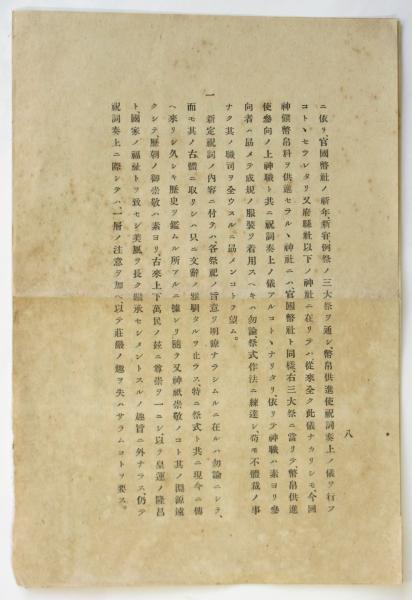 八
ニ依リ、官國幣社ノ祈年、新甞、例祭ノ三大祭ヲ通シ、幣帛供進使祝詞奏上ノ儀ヲ行フ
コトヽセラレタリ又府縣社以下ノ神社ニ在リテハ、從來全ク此儀ナカリシモ、今囘
神饌幣帛料ヲ供進セラルヽ神社ニハ、官國幣社ト同樣、右三大祭ニ當リテ、幣帛供進
使參向ノ上神職ト共ニ祝詞奏上ノ儀アルコトヽナリタリ、依リテ神職ハ素ヨリ參
向者ハ勗メテ成規ノ服裝ヲ着用スヘキハ勿論祭式作法ニ練達シ、苟モ不體裁ノ事
ナク其ノ職司ヲ全ウスルニ勗メンコトヲ望ム。
一 新定祝詞ノ內容ニ付テハ、各祭祀ノ旨意ヲ明瞭ナラシムルニ在ルハ勿論ニシテ、
而モ其ノ古體ニ取リシハ只ニ文辭ノ雅馴タルヲ止ラス、特ニ祭式ト共ニ現今ニ傳
ヘ來リシ久シキ歷史ヲ鑑ムル所アルニ據レリ、隨ヲ又神祇崇敬ノコト其ノ淵源遠
クシテ、歷朝ノ御崇敬ハ素ヨリ、古來上下萬民ノ玆ニ尊崇ヲ一ニシ、以テ皇運ノ隆昌
ト、國家ノ福祉トヲ致セシ美風ヲ長ク繼承セシメントスルノ趣旨ニ外ナラス、仍テ
祝詞奏上ニ際シテハ、一層ノ注意ヲ加ヘ以テ莊嚴ノ趣ヲ失ハサラムコトヲ要ス。